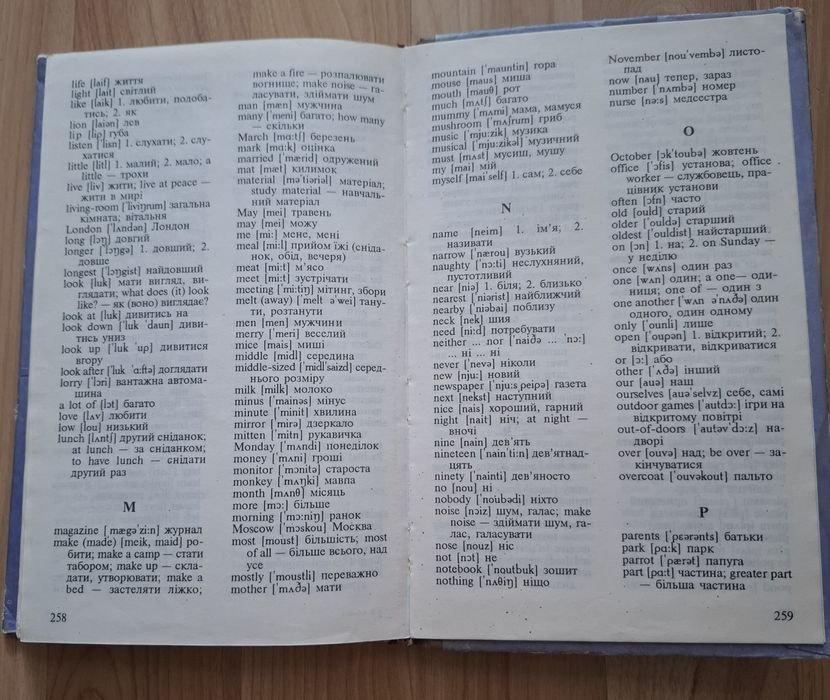 life [laif] життя
light [lait] світлий
like [laik] 1. любити, подоба-
тись; 2. як
lion [laiən] лев
lip [lip] губа
listen ['lisn] 1. слухати; 2. слу-
хатися
little [litl] 1. малий; 2. мало; a
little — трохи
live [liv] жити; live at peace —
жити в мирі
living-room ['liviŋrum] загальна
кімната; вітальня
London ['lʌndən] Лондон
long [lɔŋ] довгий
longer ['lɔŋgə] 1. довший; 2.
довше
longest ['lɔŋgist] найдовший
look [luk] мати вигляд, ви-
глядати; what does (it) look
like? — як (воно) виглядає?
look at [luk] дивитись на
look down ['luk 'daun] диви-
тись униз
look up ['luk 'ʌp] дивитися
вгору
look after ['luk 'ɑ:ftə] доглядати
lorry ['lɔri] вантажна автома-
шина
a lot of [lɔt] багато
love [lʌv] любити
low [lou] низький
lunch [lʌntʃ] другий сніданок;
at lunch — за сніданком;
to have lunch — снідати
другий раз
M
magazine [ˌmægə'zi:n] журнал
make (made) [meik, maid] ро-
бити; make a camp — стати
табором; make up — скла-
дати, утворювати; make a
bed — застеляти ліжко;
258
make a fire — розпалювати
вогнище; make noise — га-
ласувати, здіймати шум
man [mæn] мужчина
many ['meni] багато; how many
— скільки
March [mɑ:tʃ] березень
mark [mɑ:k] оцінка
married ['mærid] одружений
mat [mæt] килимок
material [mə'tiəriəl] матеріал;
study material — навчаль-
ний матеріал
May [mei] травень
may [mei] можу
me [mi:] мене, мені
meal [mi:l] прийом їжі (сніда-
нок, обід, вечеря)
meat [mi:t] м'ясо
meet [mi:t] зустрічати
meeting ['mi:tiŋ] мітинг, збори
melt (away) ['melt ə'wei] тану-
ти, розтанути
men [men] мужчини
merry ['meri] веселий
mice [mais] миші
middle [midl] середина
middle-sized ['midl'saizd] серед-
нього розміру
milk [milk] молоко
minus ['mainəs] мінус
minute ['minit] хвилина
mirror ['mirə] дзеркало
mitten ['mitn] рукавичка
Monday ['mʌndi] понеділок
money ['mʌni] гроші
monitor ['mɔnitə] староста
monkey ['mʌŋki] мавпа
month [mʌnθ] місяць
more [mɔ:] більше
morning ['mɔ:niŋ] ранок
Moscow ['mɔskou] Москва
most [moust] більшість; most
of all — більше всього, над
усе
mostly ['moustli] переважно
mother ['mʌðə] мати
mountain ['mauntin] гора
mouse [maus] миша
mouth [mauθ] рот
much [mʌtʃ] багато
mummy ['mʌmi] мама, мамуся
mushroom ['mʌʃrum] гриб
music ['mju:zik] музика
musical ['mju:zikəl] музичний
must [mʌst] мусиш, мушу
my [mai] мій
myself [mai'self] 1. сам; 2. себе
N
name [neim] 1. ім'я; 2.
називати
narrow ['nærou] вузький
naughty ['nɔ:ti] неслухняний,
пустотливий
near [niə] 1. біля; 2. близько
nearest ['niərist] найближчий
nearby ['niəbai] поблизу
neck [nek] шия
need [ni:d] потребувати
neither ... nor ['naiðə ... 'nɔ:]
... ні ... ні
never ['nevə] ніколи
new [nju:] новий
newspaper ['nju:sˌpeipə] газета
next [nekst] наступний
nice [nais] хороший, гарний
night [nait] ніч; at night —
вночі
nine [nain] дев'ять
nineteen ['nain'ti:n] дев'ятнад-
цять
ninety ['nainti] дев'яносто
no [nou] ні
nobody ['noubədi] ніхто
noise [nɔiz] шум, галас; make
noise — здіймати шум, га-
лас, галасувати
nose [nouz] ніс
not [nɔt] не
notebook ['noutbuk] зошит
nothing ['nʌθiŋ] ніщо
November [nou'vembə] листо-
пад
now [nau] тепер, зараз
number ['nʌmbə] номер
nurse [nə:s] медсестра
O
October [ɔk'toubə] жовтень
office ['ɔfis] установа; office
worker — службовець, пра-
цівник установи
often [ɔfn] часто
old [ould] старий
older ['ouldə] старший
oldest ['ouldist] найстарший
on [ɔn] 1. на; 2. on Sunday —
у неділю
once [wʌns] один раз
one [wʌn] один; a one— оди-
ниця; one of — один з
one another ['wʌn ə'nʌðə] один
одного, один одному
only ['ounli] лише
open ['oupən] 1. відкритий; 2.
відкривати, відкриватися
or [ɔ:] або
other ['ʌðə] інший
our [auə] наш
ourselves [auə'selvz] себе, самі
outdoor games ['autdɔ:] ігри на
відкритому повітрі
out-of-doors ['autəv'dɔ:z] на-
дворі
over [ouvə] над; be over — за-
кінчуватися
overcoat ['ouvəkout] пальто
P
parents ['pɛərənts] батьки
park [pɑ:k] парк
parrot ['pærət] папуга
part [pɑ:t] частина; greater part
— більша частина
259